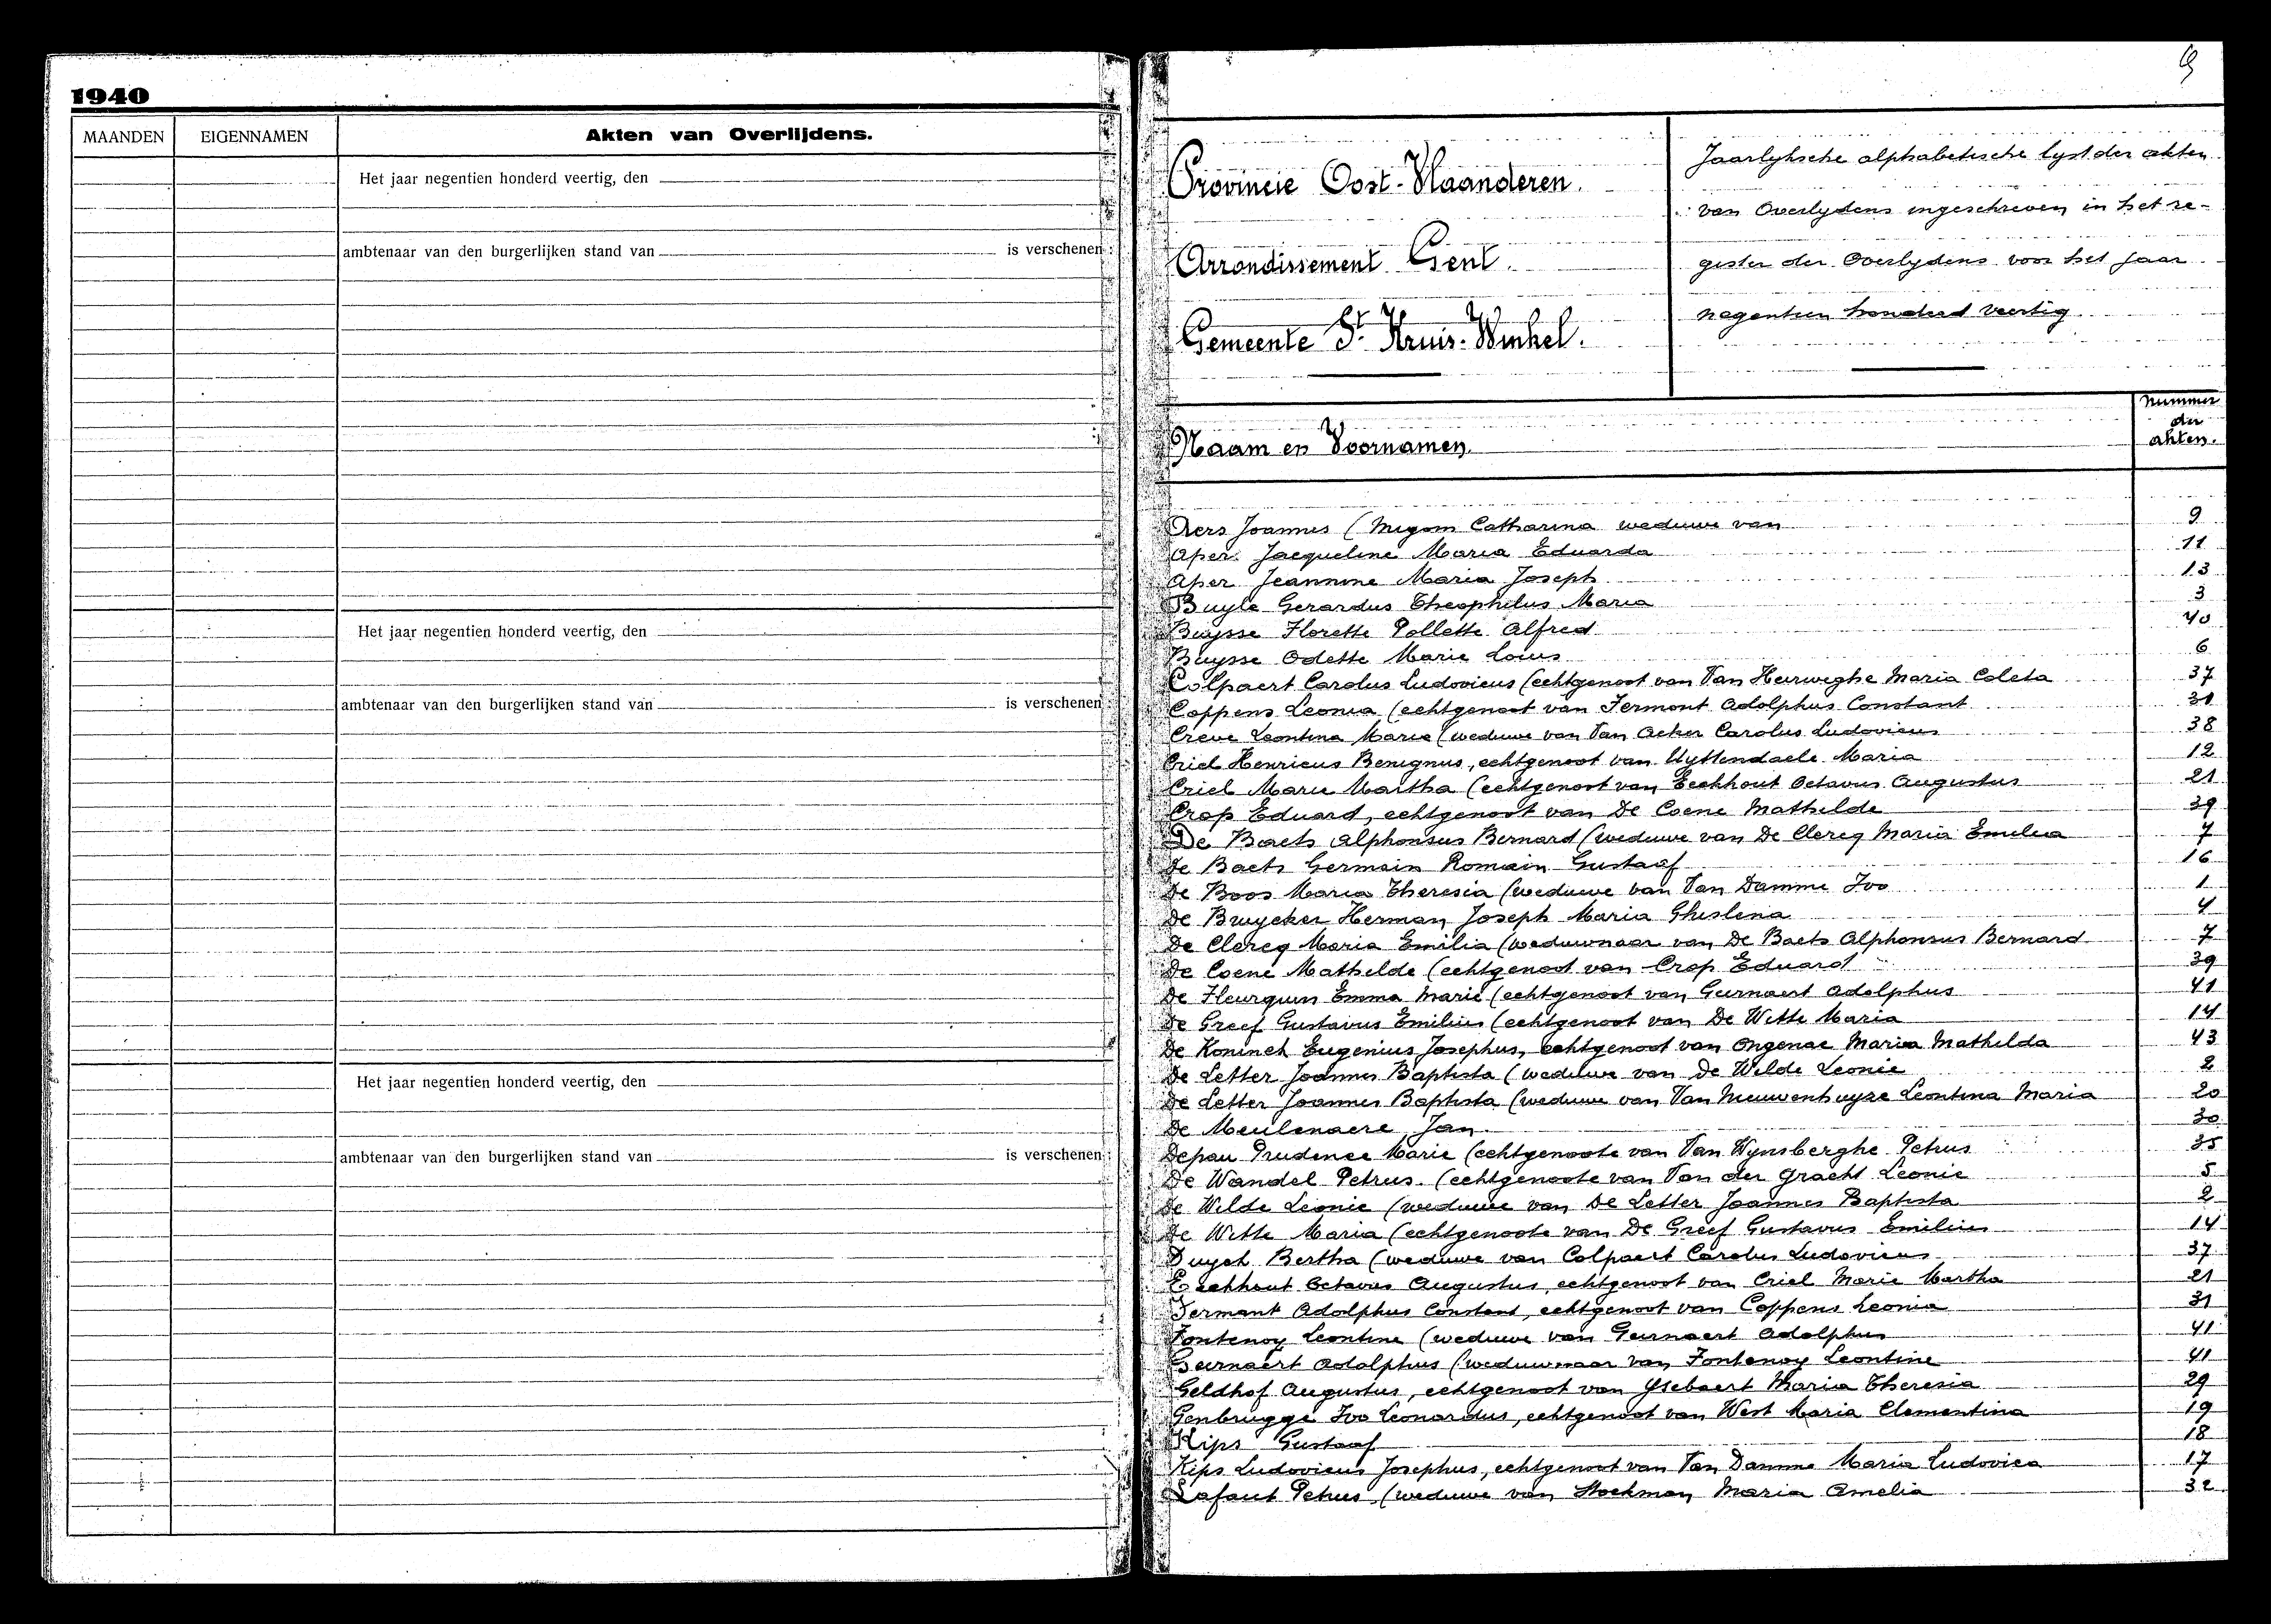 1940
MAANDEN EIGENNAMEN Akten van Overlijdens.
Het jaar negentien honderd veertig, den
ambtenaar van den burgerlijken stand van is verschenen :
Het jaar negentien honderd veertig, den
ambtenaar van den burgerlijken stand van is verschenen :
Het jaar negentien honderd veertig, den
ambtenaar van den burgerlijken stand van is verschenen :
Provincie Oost-Vlaanderen.
Arrondissement Gent.
Gemeente St. Kruis-Winkel.
Jaarlyksche alphabetische lyst der akten
van Overlydens ingeschreven in het re-
gister der Overlydens voor het jaar
negentien honderd veertig
Naam en Voornamen. nummer der akten.
Aers Joannes (Migom Catharina weduwe van 9
Aper Jacqueline Maria Eduarda 11
Aper Jeannine Maria Joseph 13
Buyle Gerardus Theophilus Maria 3
Buysse Florette Pollette Alfred 40
Buysse Odette Marie Louis 6
Colpaert Carolus Ludovicus (echtgenoot van Van Herweghe Maria Coleta 37
Coppens Leonia (echtgenoot van Fermont Adolphus Constant 31
Creve Leontina Marie (weduwe van Van Acker Carolus Ludovicus 38
Criel Henricus Benignus, echtgenoot van Uyttendaele Maria 12
Criel Marie Martha (echtgenoot van Eeckhout Octavus Augustus 21
Crop Eduard, echtgenoot van De Coene Mathilde 39
De Baets Alphonsus Bernard (weduwe van De Clercq Maria Emilia 7
De Baets Germain Romain Gustaaf 16
De Boos Maria Theresia (weduwe van Van Damme Ivo 1
De Bruycker Herman Joseph Maria Ghislena 4
De Clercq Maria Emilia (weduwnaar van De Baets Alphonsus Bernard 7
De Coene Mathilde (echtgenoot van Crop Eduard 39
De Fleurquin Emma Marie (echtgenoot van Geernaert Adolphus 41
De Greef Gustavus Emilius (echtgenoot van De Witte Maria 14
De Koninck Eugenius Josephus, echtgenoot van Ongenae Maria Mathilda 43
De Letter Joannes Baptista (weduwe van De Wilde Leonie 2
De Letter Joannes Baptista (weduwe van Van Nieuwenhuyze Leontina Maria 20
De Meulenaere Jan 30
Depau Prudence Marie (echtgenoote van Van Wynsberghe Petrus 35
De Wandel Petrus (echtgenoote van Van der Gracht Leonie 5
De Wilde Leonie (weduwe van De Letter Joannes Baptista 2
De Witte Maria (echtgenoote van De Greef Gustavus Emilius 14
Duyck Bertha (weduwe van Colpaert Carolus Ludovicus 37
Eeckhout Octavus Augustus, echtgenoot van Criel Marie Martha 21
Fermont Adolphus Constant, echtgenoot van Coppens Leonia 31
Fontenoy Leontine (weduwe van Geernaert Adolphus 41
Geernaert Adolphus (weduwnaar van Fontenoy Leontine 41
Geldhof Augustus, echtgenoot van Ysebaert Maria Theresia 29
Genbrugge Ivo Leonardus, echtgenoot van West Maria Clementina 19
Kips Gustaaf 18
Kips Ludovicus Josephus, echtgenoot van Van Damme Maria Ludovica 17
Lafaut Petrus (weduwe van Stockman Maria Amelia 32